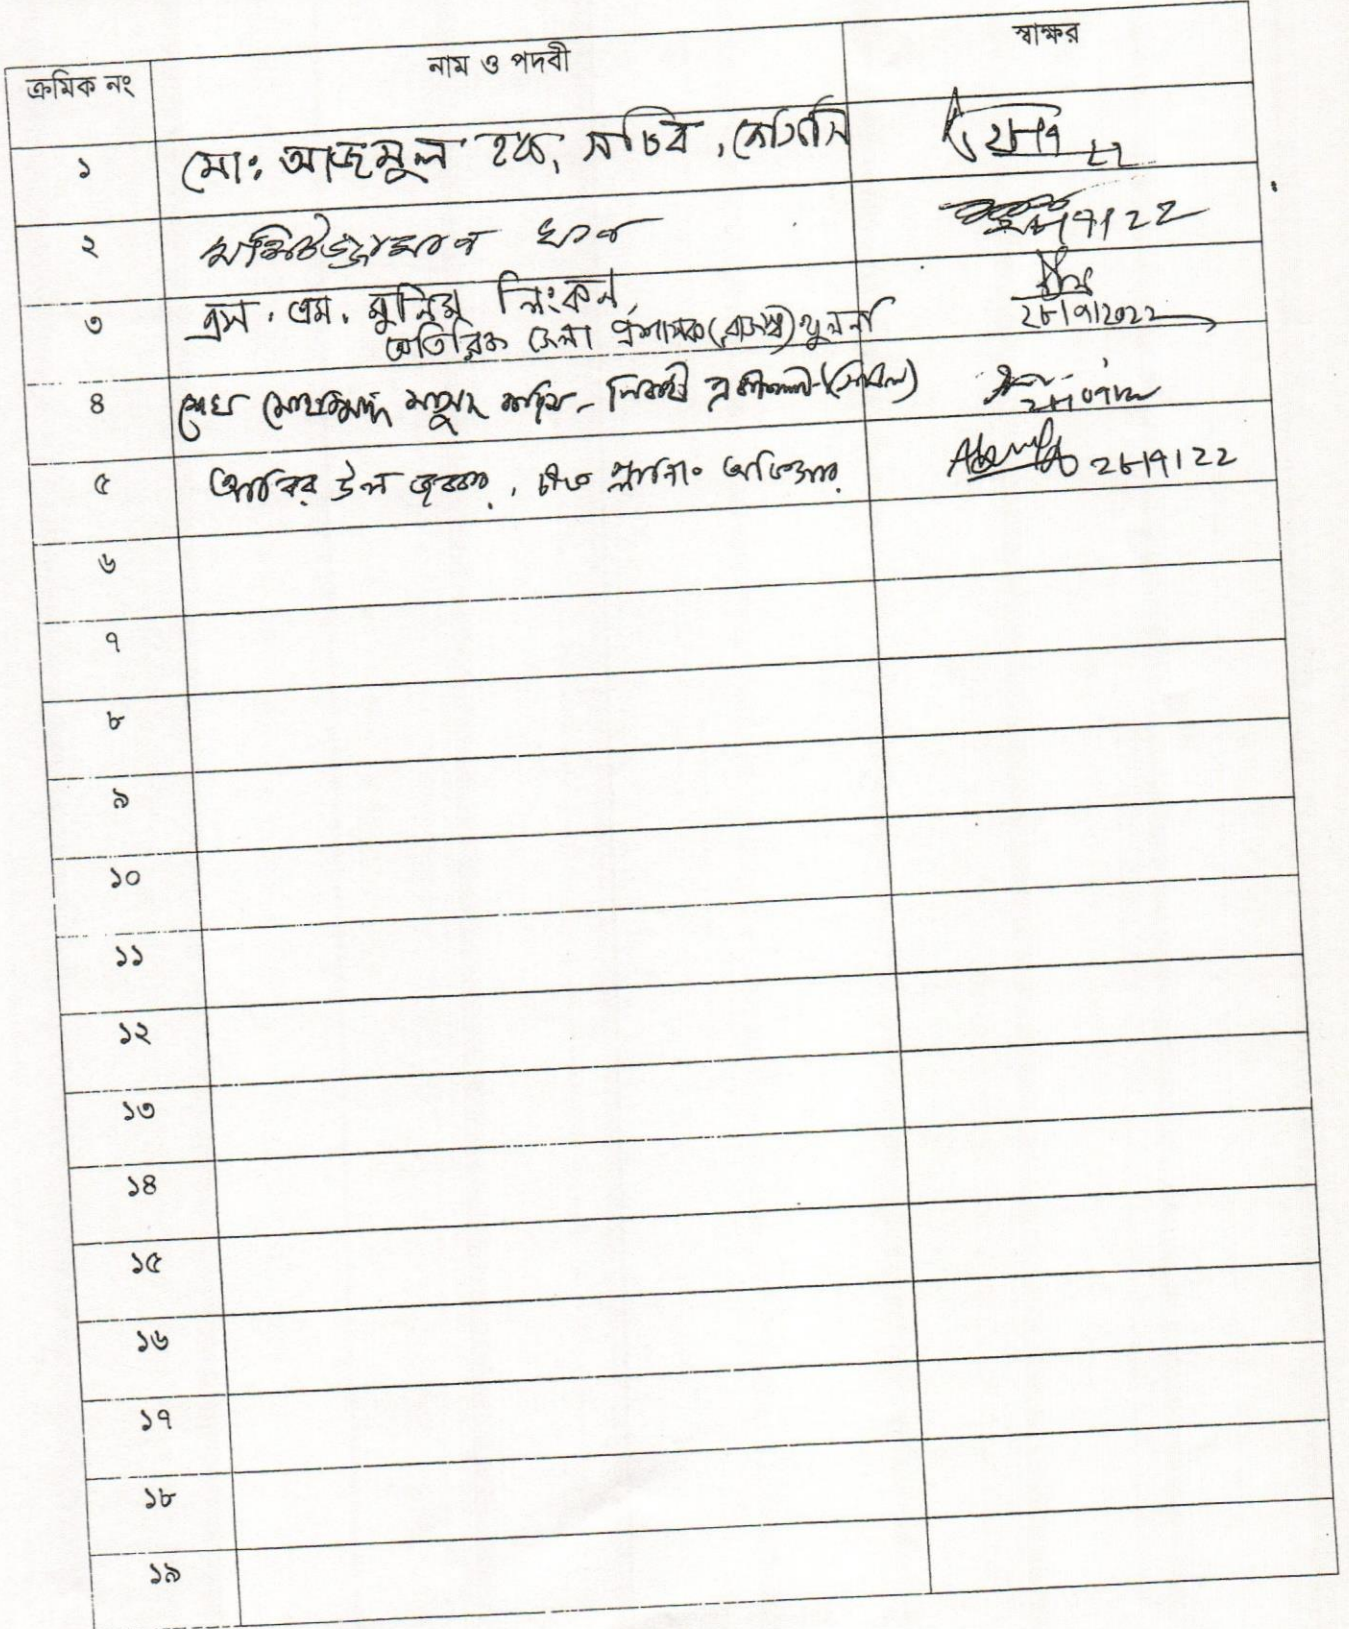 ক্রমিক নং নাম ও পদবী স্বাক্ষর
১ মোঃ আজমুল হক, সচিব, কেসিসি ২৮/৭ ২২
২ খান 28/7/22
৩ এস. এম. মুনিম লিংকন,
অতিরিক্ত জেলা প্রশাসক (রাজস্ব) খুলনা ২৮/৭/২০২২
৪ শেখ মোহাম্মদ মাসুদ করিম - নির্বাহী প্রকৌশলী (সিভিল)
৫ আবির উল জব্বার, চীফ প্ল্যানিং অফিসার 28/7/22
৬
৭
৮
৯
১০
১১
১২
১৩
১৪
১৫
১৬
১৭
১৮
১৯